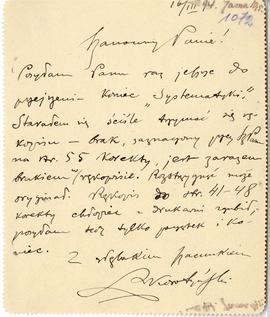 16/III 94.
1072
Szanowny Panie!
Posyłam Panu raz jeszcze do
przejrzenia koniec „Systematyki".
Starałem się ściśle trzymać się rę-
kopisu — brak, zaznaczony przez Pana
na str. 55 korekty, jest zarazem
brakiem rękopisie. Rozstrzygnąć może
oryginał. Rękopis do str. 41–48
korekty chłopiec z drukarni zgubił,
posyłam też tylko początek i ko-
niec.
Z głębokim szacunkiem